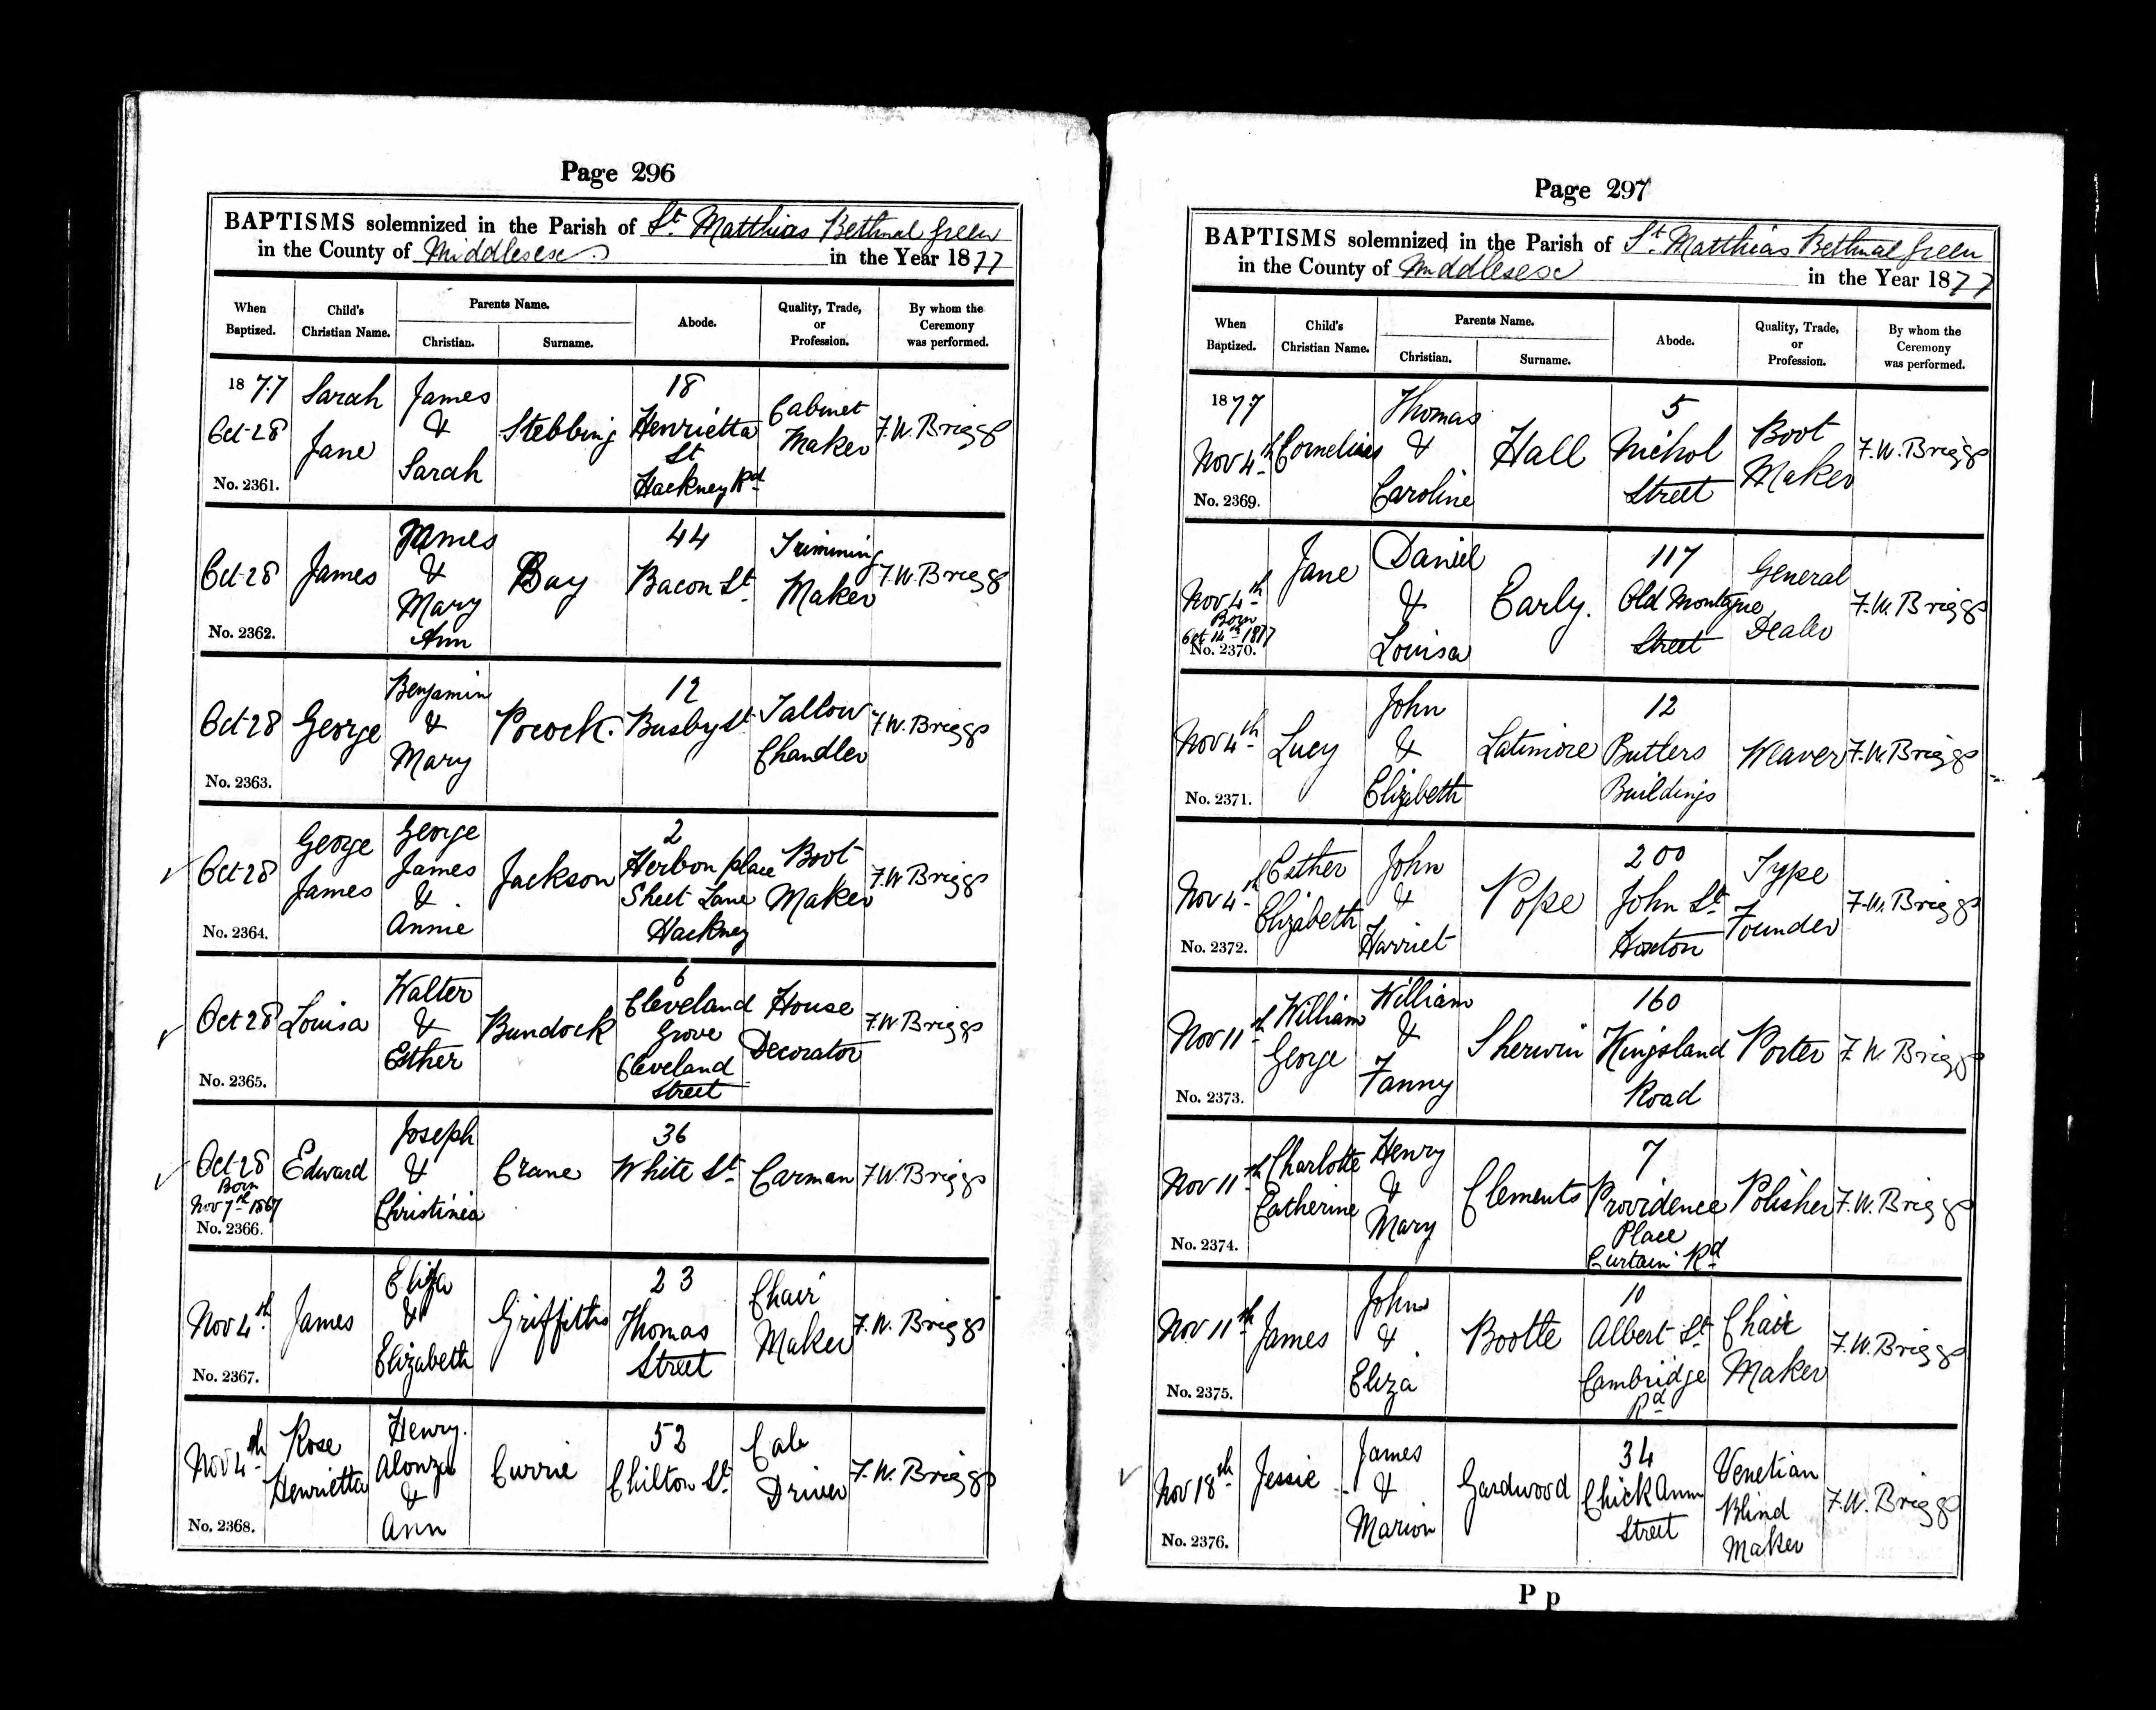 Page 296
BAPTISMS solemnized in the Parish of St. Matthias Bethnal Green
in the County of Middlesex in the Year 1877
When Baptized.
Child's Christian Name.
Parents Name.
Christian.
Surname.
Abode.
Quality, Trade, or Profession.
By whom the Ceremony was performed.
1877
Oct 28
No. 2361.
Sarah
Jane
James
&
Sarah
Stebbing
18
Henrietta
St
Hackney Rd
Cabinet
Maker
F. W. Briggs
Oct 28
No. 2362.
James
James
&
Mary
Ann
Day
44
Bacon St
Trimming
Maker
F. W. Briggs
Oct 28
No. 2363.
George
Benjamin
&
Mary
Pocock.
12
Busby St
Tallow
Chandler
F. W. Briggs
Oct 28
No. 2364.
George
James
George
James
&
Annie
Jackson
2
place
Lane
Hackney
Boot
Maker
F. W. Briggs
Oct 28
No. 2365.
Louisa
Walter
&
Esther
Bundock
6
Cleveland
Grove
Cleveland
Street
House
Decorator
F. W. Briggs
Oct 28
Born
Nov 7th 1867
No. 2366.
Edward
Joseph
&
Christinia
Crane
36
White St
Carman
F. W. Briggs
Nov 4th
No. 2367.
James
&
Elizabeth
Griffiths
23
Thomas
Street
Chair
Maker
F. W. Briggs
Nov 4th
No. 2368.
Rose
Henrietta
Henry.
Alonza
&
Ann
Currie
52
Chilton St
Cab
Driver
F. W. Briggs
Page 297
BAPTISMS solemnized in the Parish of St Matthias Bethnal Green
in the County of Middlesex in the Year 1877
When Baptized.
Child's Christian Name.
Parents Name.
Christian.
Surname.
Abode.
Quality, Trade, or Profession.
By whom the Ceremony was performed.
1877
Nov 4th
No. 2369.
Cornelius
Thomas
&
Caroline
Hall
5
Nichol
Street
Boot
Maker
F. W. Briggs
Nov 4th
Born
Oct 14th 1877
No. 2370.
Jane
Daniel
&
Louisa
Early.
117
Old Montague
Street
General
Dealer
F. W. Briggs
Nov 4th
No. 2371.
Lucy
John
&
Elizabeth
Latimore
12
Butlers
Buildings
Weaver
F. W. Briggs
Nov 4th
No. 2372.
Esther
Elizabeth
John
&
Harriet
Pope
200
John St
Hoxton
Type
Founder
F. W. Briggs
Nov 11th
No. 2373.
William
George
William
&
Fanny
Sherwin
160
Kingsland
Road
Porter
F. W. Briggs
Nov 11th
No. 2374.
Charlotte
Catherine
Henry
&
Mary
Clements
7
Providence
Place
Curtain Rd
Polisher
F. W. Briggs
Nov 11th
No. 2375.
James
John
&
Eliza
Bootle
10
Albert St
Cambridge
Rd
Chair
Maker
F. W. Briggs
Nov 18th
No. 2376.
Jessie
James
&
Marion
Gardwood
34
Chick Ann
Street
Venetian
Blind
Maker
F. W. Briggs
P p